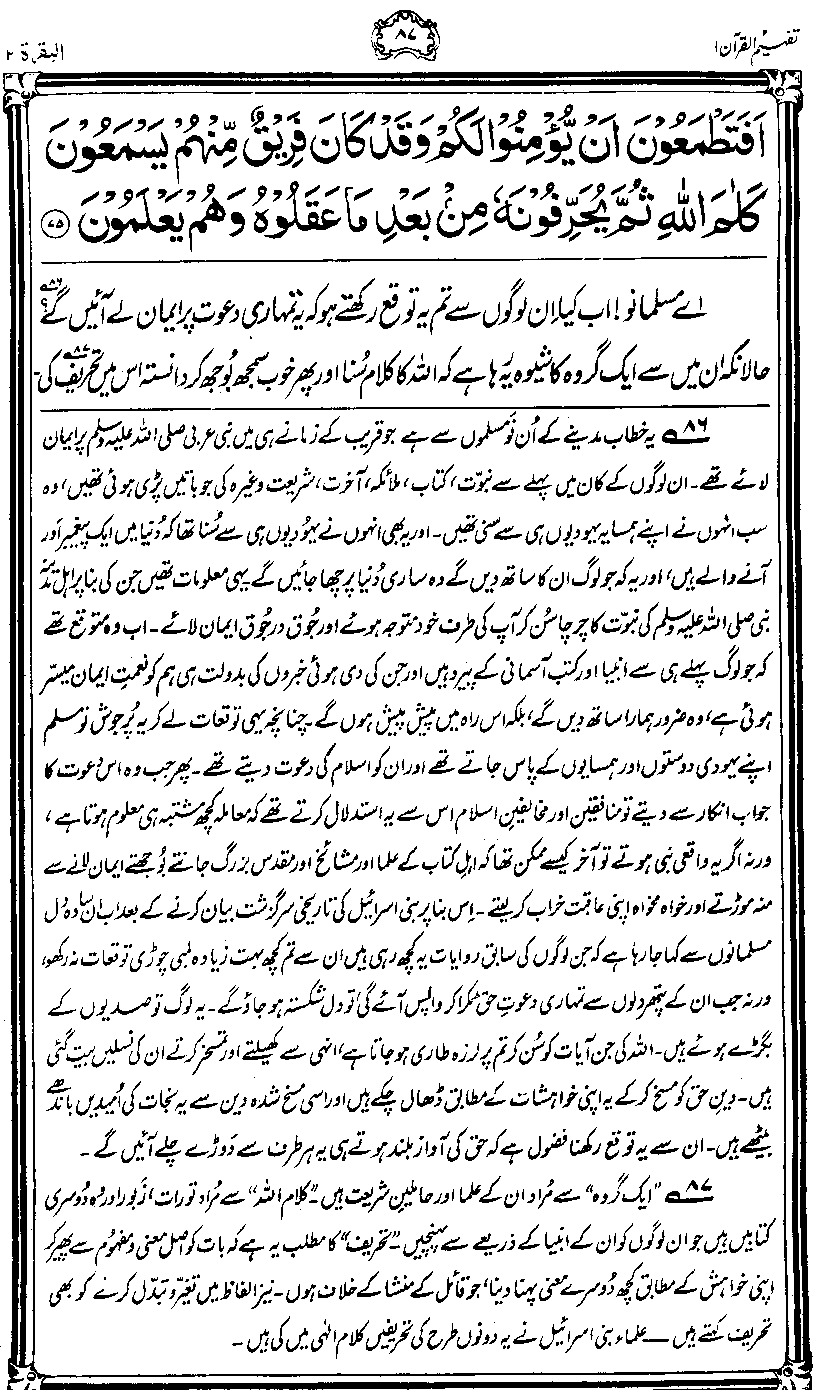 تفہیم القرآن ۱
۸۷
البقرۃ ۲
اَفَتَطْمَعُوْنَ اَنْ يُّؤْمِنُوْا لَكُمْ وَقَدْ كَانَ فَرِيْقٌ مِّنْهُمْ يَسْمَعُوْنَ
كَلٰمَ اللّٰهِ ثُمَّ يُحَرِّفُوْنَهٗ مِنْۢ بَعْدِ مَا عَقَلُوْهُ وَهُمْ يَعْلَمُوْنَ ﴿۷۵﴾
اے مسلمانو! اب کیا اِن لوگوں سے تم یہ توقع رکھتے ہو کہ یہ تمہاری دعوت پر ایمان لے آئیں گے؟۸۶
حالانکہ ان میں سے ایک گروہ کا شیوہ یہ رہا ہے کہ اللہ کا کلام سُنا اور پھر خوب سمجھ بُوجھ کر دانستہ اس میں تحریف۸۷ کی۔
۸۶ یہ خطاب مدینے کے اُن نَو مسلموں سے ہے جو قریب کے زمانے ہی میں نبی عربی صلی اللہ علیہ وسلم پر ایمان
لائے تھے۔ ان لوگوں کے کان میں پہلے سے نبوّت، کتاب، ملائکہ، آخرت، شریعت وغیرہ کی جو باتیں پڑی ہوئی تھیں، وہ
سب انہوں نے اپنے ہمسایہ یہودیوں ہی سے سنی تھیں۔ اور یہ بھی انہوں نے یہُودیوں ہی سے سُنا تھا کہ دُنیا میں ایک پیغمبر اَور
آنے والے ہیں، اور یہ کہ جو لوگ ان کا ساتھ دیں گے وہ ساری دُنیا پر چھا جائیں گے۔ یہی معلومات تھیں جن کی بنا پر اہل مدینہ
نبی صلی اللہ علیہ وسلم کی نبوّت کا چرچا سُن کر آپ کی طرف خود متوجہ ہوئے اور جُوق در جُوق ایمان لائے۔ اب وہ متوقع تھے
کہ جو لوگ پہلے ہی سے انبیا اور کتب آسمانی کے پیرو ہیں اور جن کی دی ہوئی خبروں کی بدولت ہی ہم کو نعمتِ ایمان میسّر
ہوئی ہے، وہ ضرور ہمارا ساتھ دیں گے، بلکہ اس راہ میں پیش پیش ہوں گے۔ چنانچہ یہی توقعات لے کر یہ پُرجوش نو مسلم
اپنے یہودی دوستوں اور ہمسایوں کے پاس جاتے تھے اور ان کو اسلام کی دعوت دیتے تھے۔ پھر جب وہ اس دعوت کا
جواب انکار سے دیتے تو منافقین اور مخالفینِ اسلام اس سے یہ استدلال کرتے تھے کہ معاملہ کچھ مشتبہ ہی معلوم ہوتا ہے،
ورنہ اگر یہ واقعی نبی ہوتے تو آخر کیسے ممکن تھا کہ اہلِ کتاب کے علما اور مشائخ اور مقدس بزرگ جانتے بُوجھتے ایمان لانے سے
منہ موڑتے اور خواہ مخواہ اپنی عاقبت خراب کر لیتے۔ اِس بنا پر بنی اسرائیل کی تاریخی سرگزشت بیان کرنے کے بعد اب ان سادہ دل
مسلمانوں سے کہا جا رہا ہے کہ جن لوگوں کی سابق روایات یہ کچھ رہی ہیں ان سے تم کچھ بہت زیادہ لمبی چوڑی توقعات نہ رکھو،
ورنہ جب ان کے پتھر دلوں سے تمہاری دعوتِ حق ٹکرا کر واپس آئے گی تو دل شکستہ ہو جاؤ گے۔ یہ لوگ تو صدیوں کے
بگڑے ہوئے ہیں۔ اللہ کی جن آیات کو سُن کر تم پر لرزہ طاری ہو جاتا ہے، انہی سے کھیلتے اور تمسخر کرتے ان کی نسلیں بیت گئی
ہیں۔ دینِ حق کو مسخ کر کے یہ اپنی خواہشات کے مطابق ڈھال چکے ہیں اور اسی مسخ شدہ دین سے یہ نجات کی اُمیدیں باندھے
بیٹھے ہیں۔ ان سے یہ توقع رکھنا فضول ہے کہ حق کی آواز بلند ہوتے ہی یہ ہر طرف سے دَوڑے چلے آئیں گے۔
۸۷ "ایک گروہ" سے مُراد ان کے علما اور حاملینِ شریعت ہیں۔ "کلام اللہ" سے مُراد تورات، زَبور اور وہ دُوسری
کتابیں ہیں جو ان لوگوں کو ان کے انبیا کے ذریعے سے پہنچیں۔ "تحریف" کا مطلب یہ ہے کہ بات کو اصل معنی و مفہوم سے پھیر کر
اپنی خواہش کے مطابق کچھ دُوسرے معنی پہنا دینا، جو قائل کے منشا کے خلاف ہوں۔ نیز الفاظ میں تغیّر و تبدّل کرنے کو بھی
تحریف کہتے ہیں ــــ علماءِ بنی اسرائیل نے یہ دونوں طرح کی تحریفیں کلامِ الٰہی میں کی ہیں۔